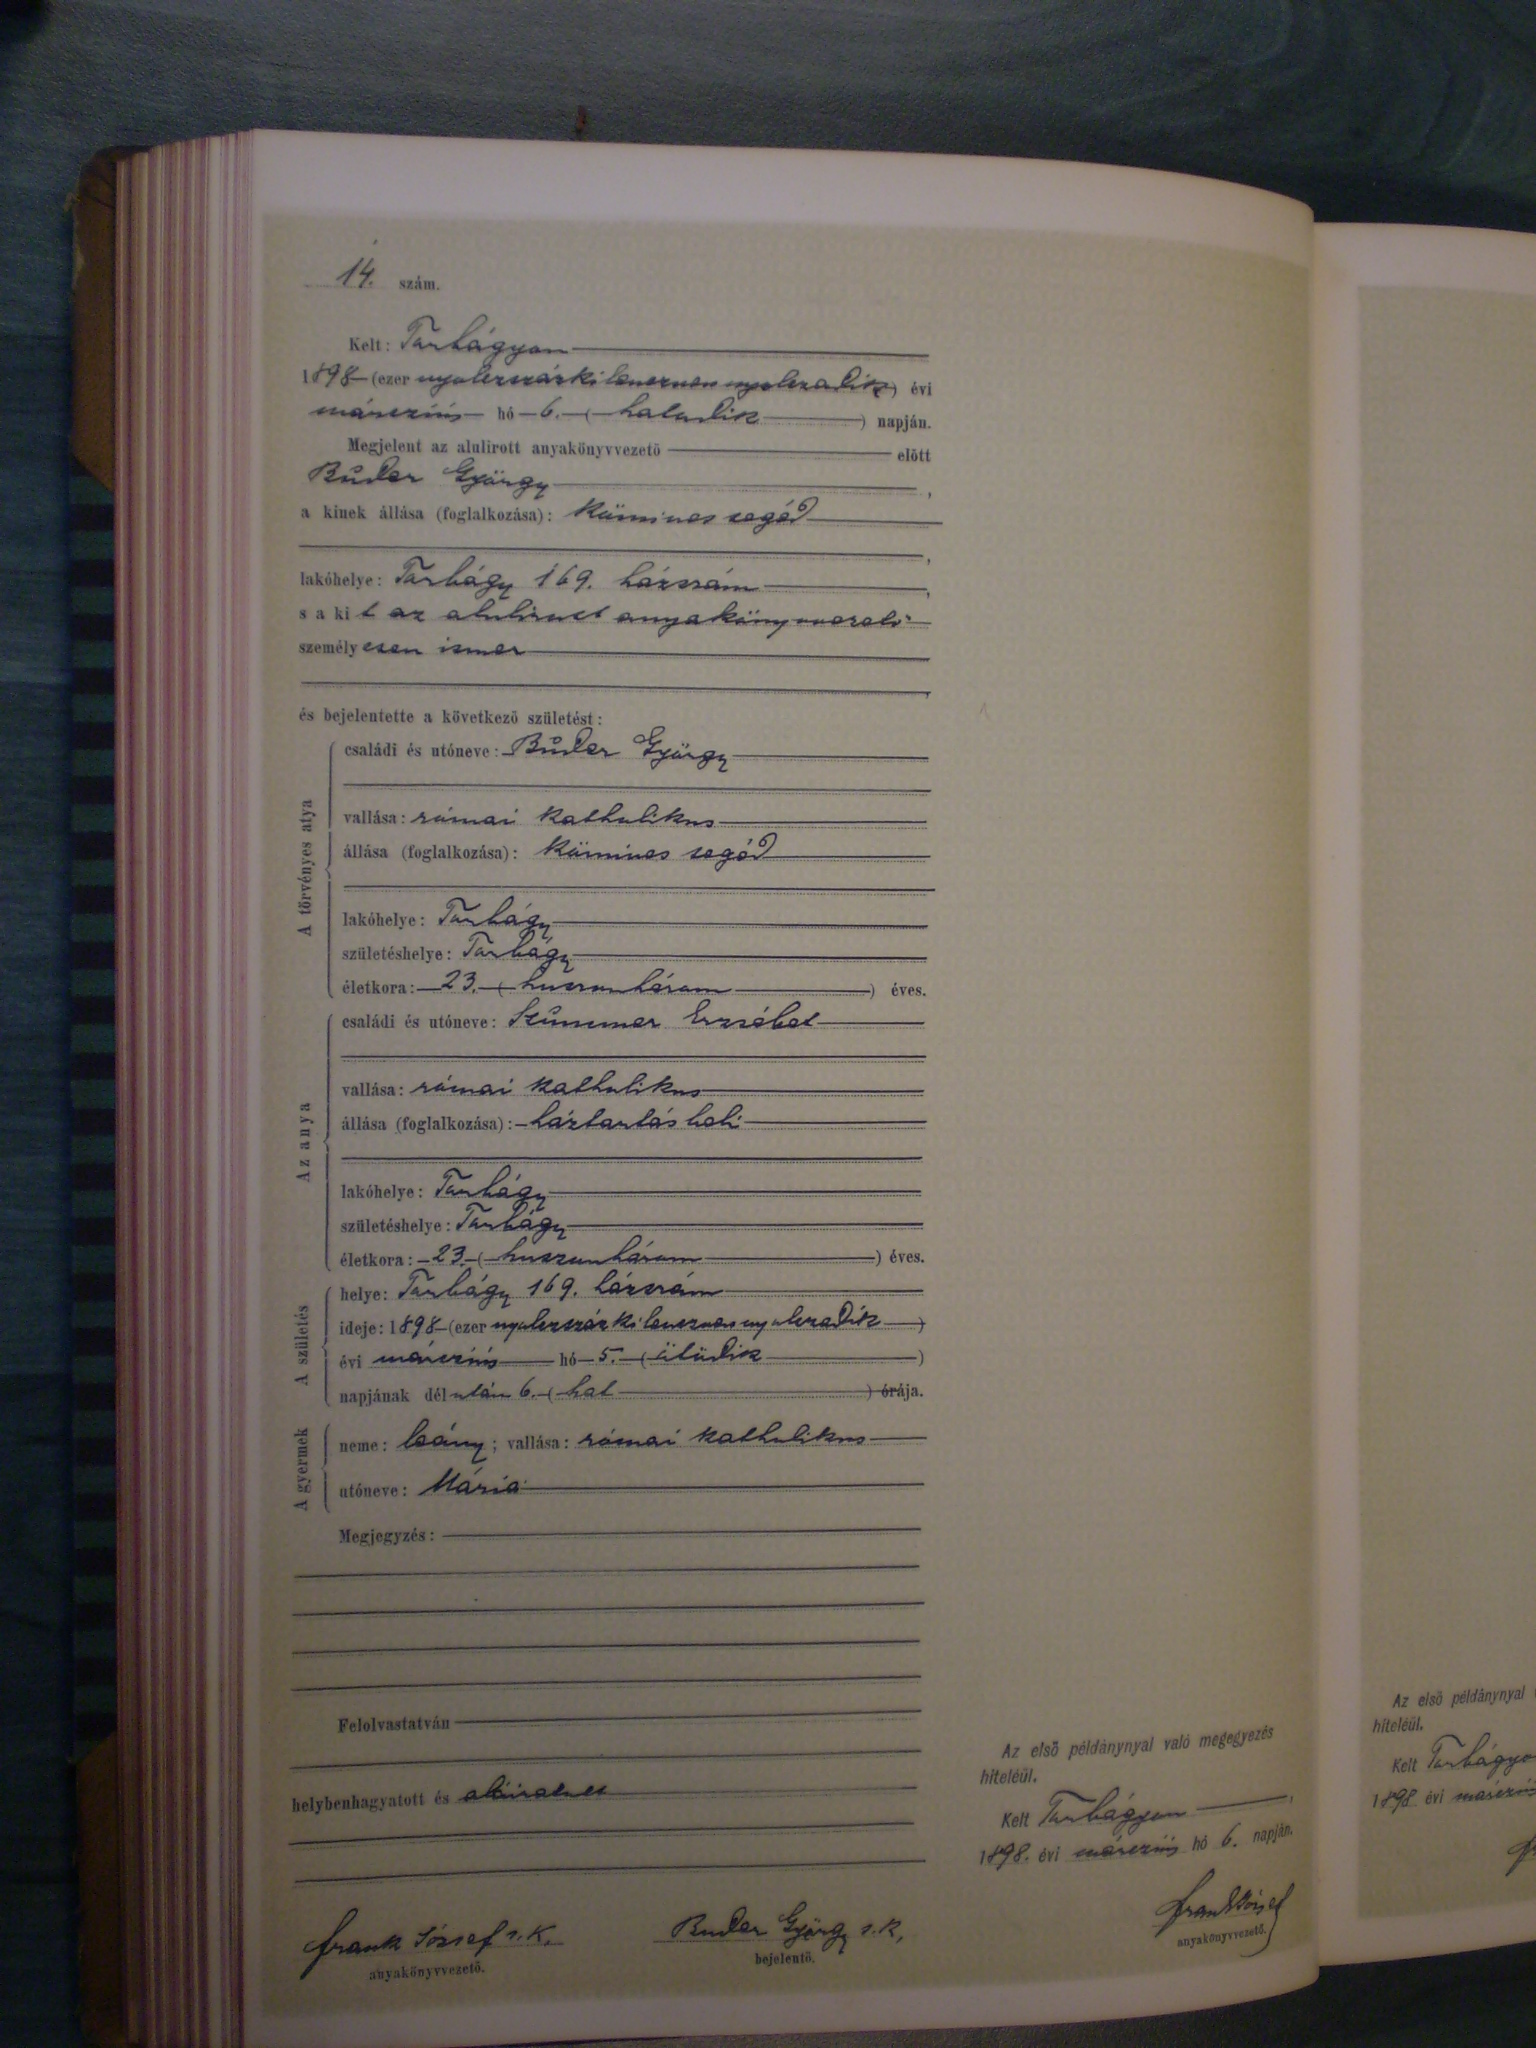 14. szám.
Kelt: Torbágyon
1898 (ezer nyolczszázkilenczvennyolczadik) évi
márczius hó 6. (hatodik) napján.
Megjelent az alulirott anyakönyvvezető előtt
Buder György,
a kinek állása (foglalkozása): Kőmives segéd
lakóhelye: Torbágy 169. házszám,
s a kit az alulirott anyakönyvvezető
személyesen ismer
és bejelentette a következő születést:
A törvényes atya
családi és utóneve: Buder György
vallása: római katholikus
állása (foglalkozása): Kőmives segéd
lakóhelye: Torbágy
születéshelye: Torbágy
életkora: 23. (huszonhárom) éves.
Az anya
családi és utóneve: Stummer Erzsébet
vallása: római katholikus
állása (foglalkozása): háztartásbeli
lakóhelye: Torbágy
születéshelye: Torbágy
életkora: 23. (huszonhárom) éves.
A születés
helye: Torbágy 169. házszám
ideje: 1898 (ezer nyolczszázkilenczvennyolczadik)
évi márczius hó 5. (ötödik)
napjának délután 6. (hat) órája.
A gyermek
neme: leány; vallása: római katholikus
utóneve: Mária
Megjegyzés:
Felolvastatván
helybenhagyatott és aláiratott
Frank József s. k.
anyakönyvvezető.
Buder György s. k,
bejelentő.
Az első példánynyal való megegyezés
hiteléül.
Kelt Torbágyon,
1898. évi márczius hó 6. napján.
Frank József
anyakönyvvezető.
Az első példánynyal
hiteléül.
Kelt Torbágyo
1898 évi márczius